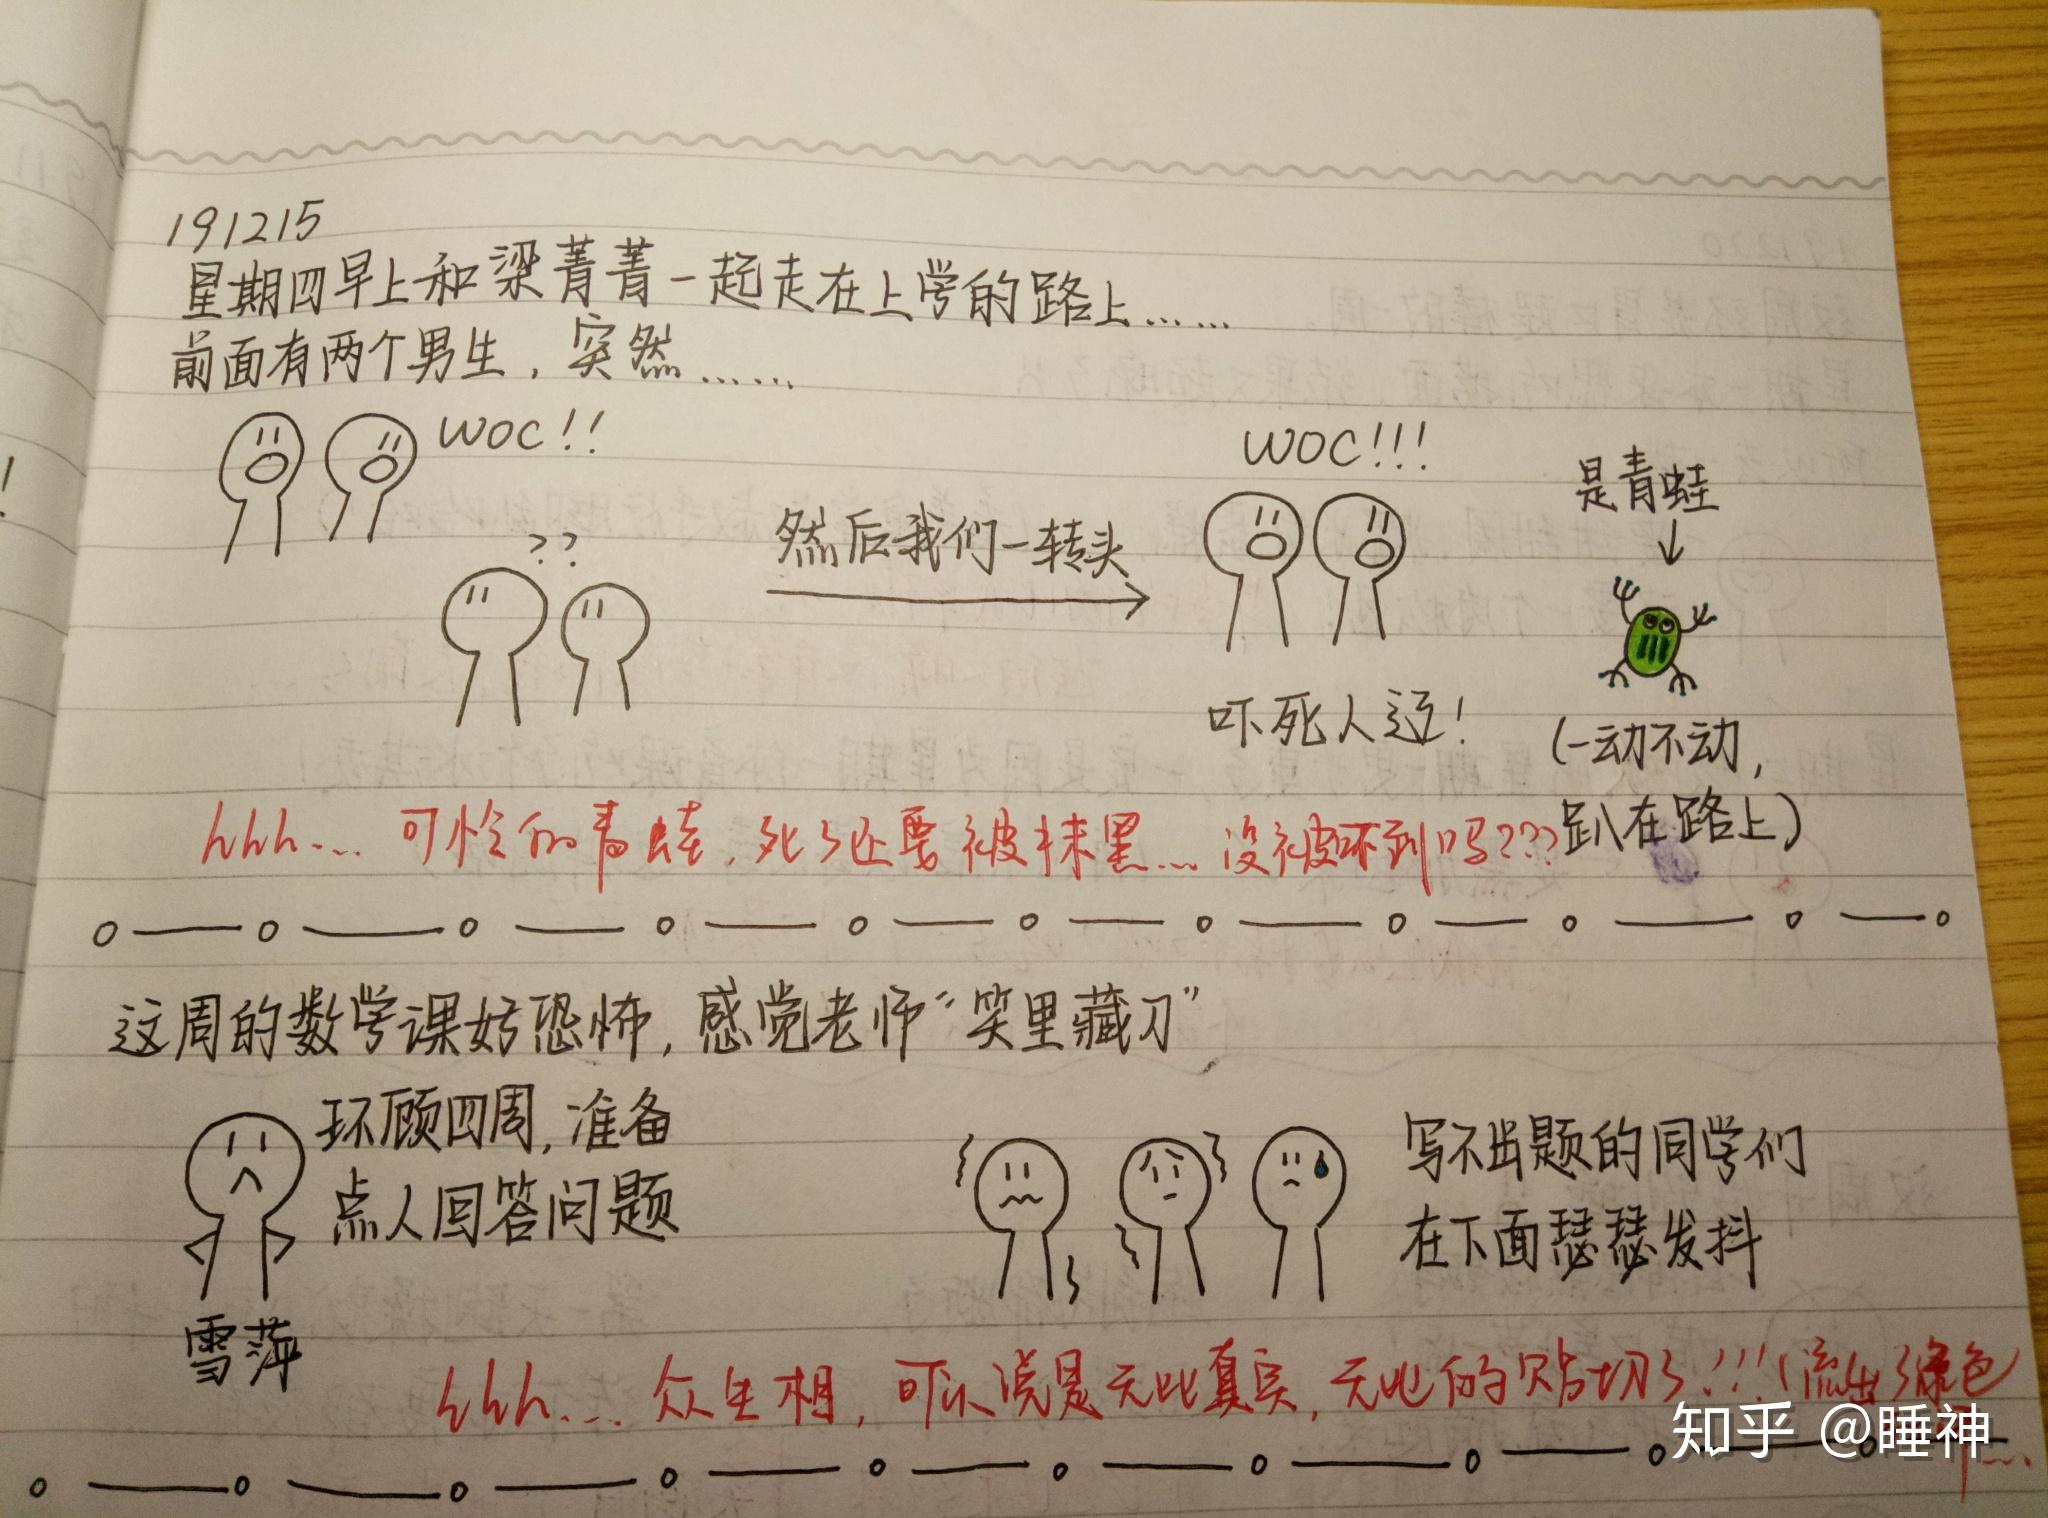 191215
星期四早上和梁菁菁一起走在上学的路上……
前面有两个男生，突然……
WOC!!
??
然后我们一转头
WOC!!!
是青蛙
吓死人迈！
(一动不动，
趴在路上)
hhh... 可怜的青蛙，死了还要被抹黑... 没被吓到吗???
这周的数学课好恐怖，感觉老师“笑里藏刀”
环顾四周，准备
点人回答问题
雪萍
写不出题的同学们
在下面瑟瑟发抖
hhh... 众生相，可以说是无比真实，无比的贴切了!!!(流出了绿色
知乎 @睡神